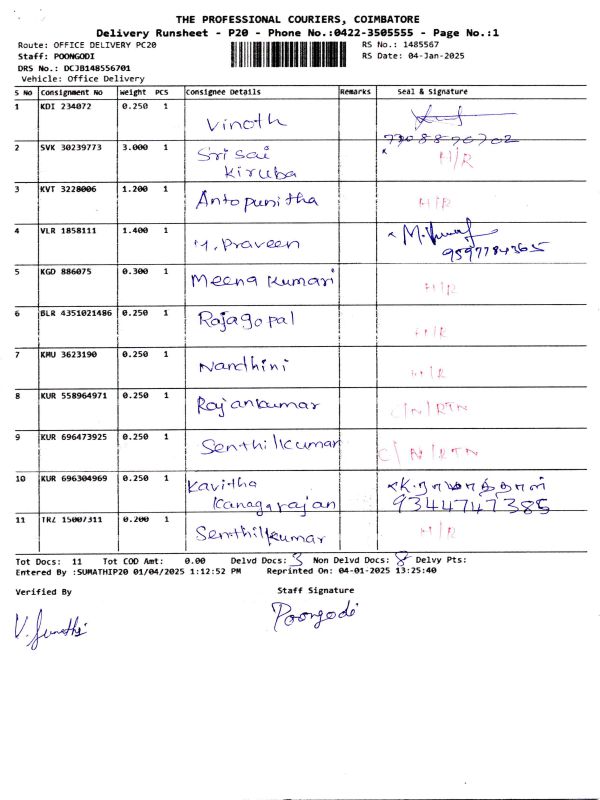 THE PROFESSIONAL COURIERS, COIMBATORE
Delivery Runsheet - P20 - Phone No.:0422-3505555 - Page No.:1
Route: OFFICE DELIVERY PC20 RS No.: 1485567
Staff: POONGODI RS Date: 04-Jan-2025
DRS No.: DCJB148556701
Vehicle: Office Delivery
S No Consignment No Weight PCS Consignee Details Remarks Seal & Signature
1 KDI 234072 0.250 1 Vinoth
7708870702
2 SVK 30239773 3.000 1 Sri sai Kiruba H/R
3 KVT 3228006 1.200 1 Antopunitha H/R
4 VLR 1858111 1.400 1 M. Praveen
9597784365
5 KGD 886075 0.300 1 Meena Kumari H/R
6 BLR 4351021486 0.250 1 Rajagopal H/R
7 KMU 3623190 0.250 1 Nandhini H/R
8 KUR 558964971 0.250 1 Rajankumar C/N/RTN
9 KUR 696473925 0.250 1 Senthilkumar C/N/RTN
10 KUR 696304969 0.250 1 Kavitha Kanagarajan
9344747385
11 TRZ 15007311 0.200 1 Senthilkumar H/R
Tot Docs: 11 Tot COD Amt: 0.00 Delvd Docs: 3 Non Delvd Docs: 8 Delvy Pts:
Entered By :SUMATHIP20 01/04/2025 1:12:52 PM Reprinted On: 04-01-2025 13:25:40
Verified By Staff Signature
V. Sumathi Poongodi